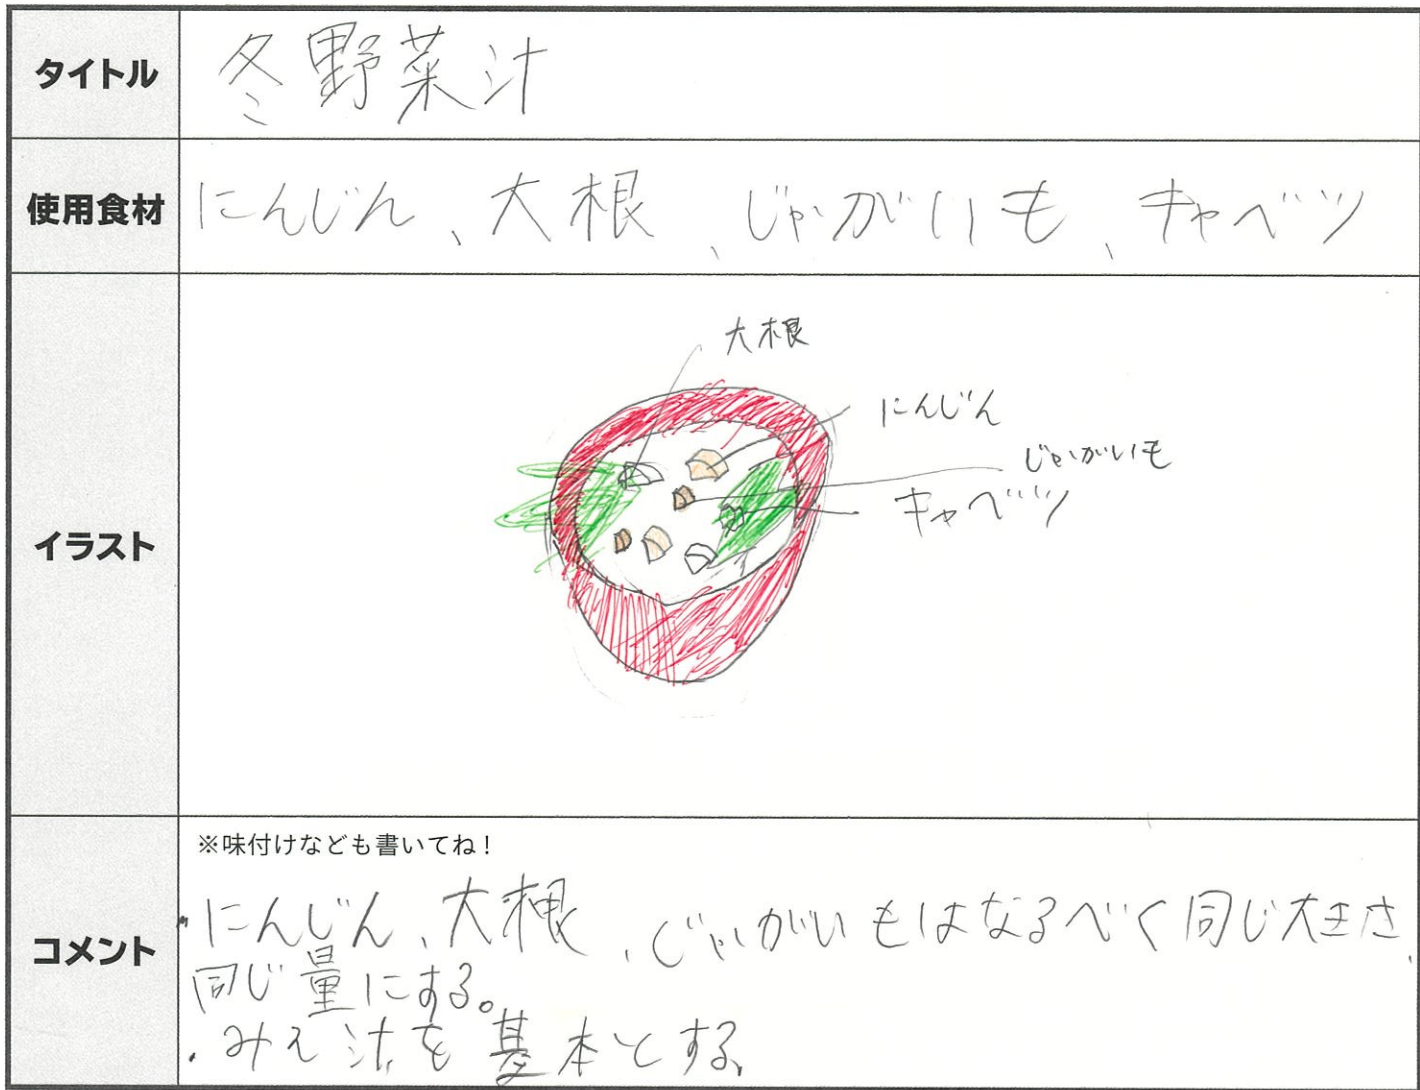 タイトル
冬野菜汁
使用食材
にんじん、大根、じゃがいも、キャベツ
イラスト
大根
にんじん
じゃがいも
キャベツ
コメント
※味付けなども書いてね！
・にんじん、大根、じゃがいもはなるべく同じ大きさ、
同じ量にする。
・みそ汁を基本とする。